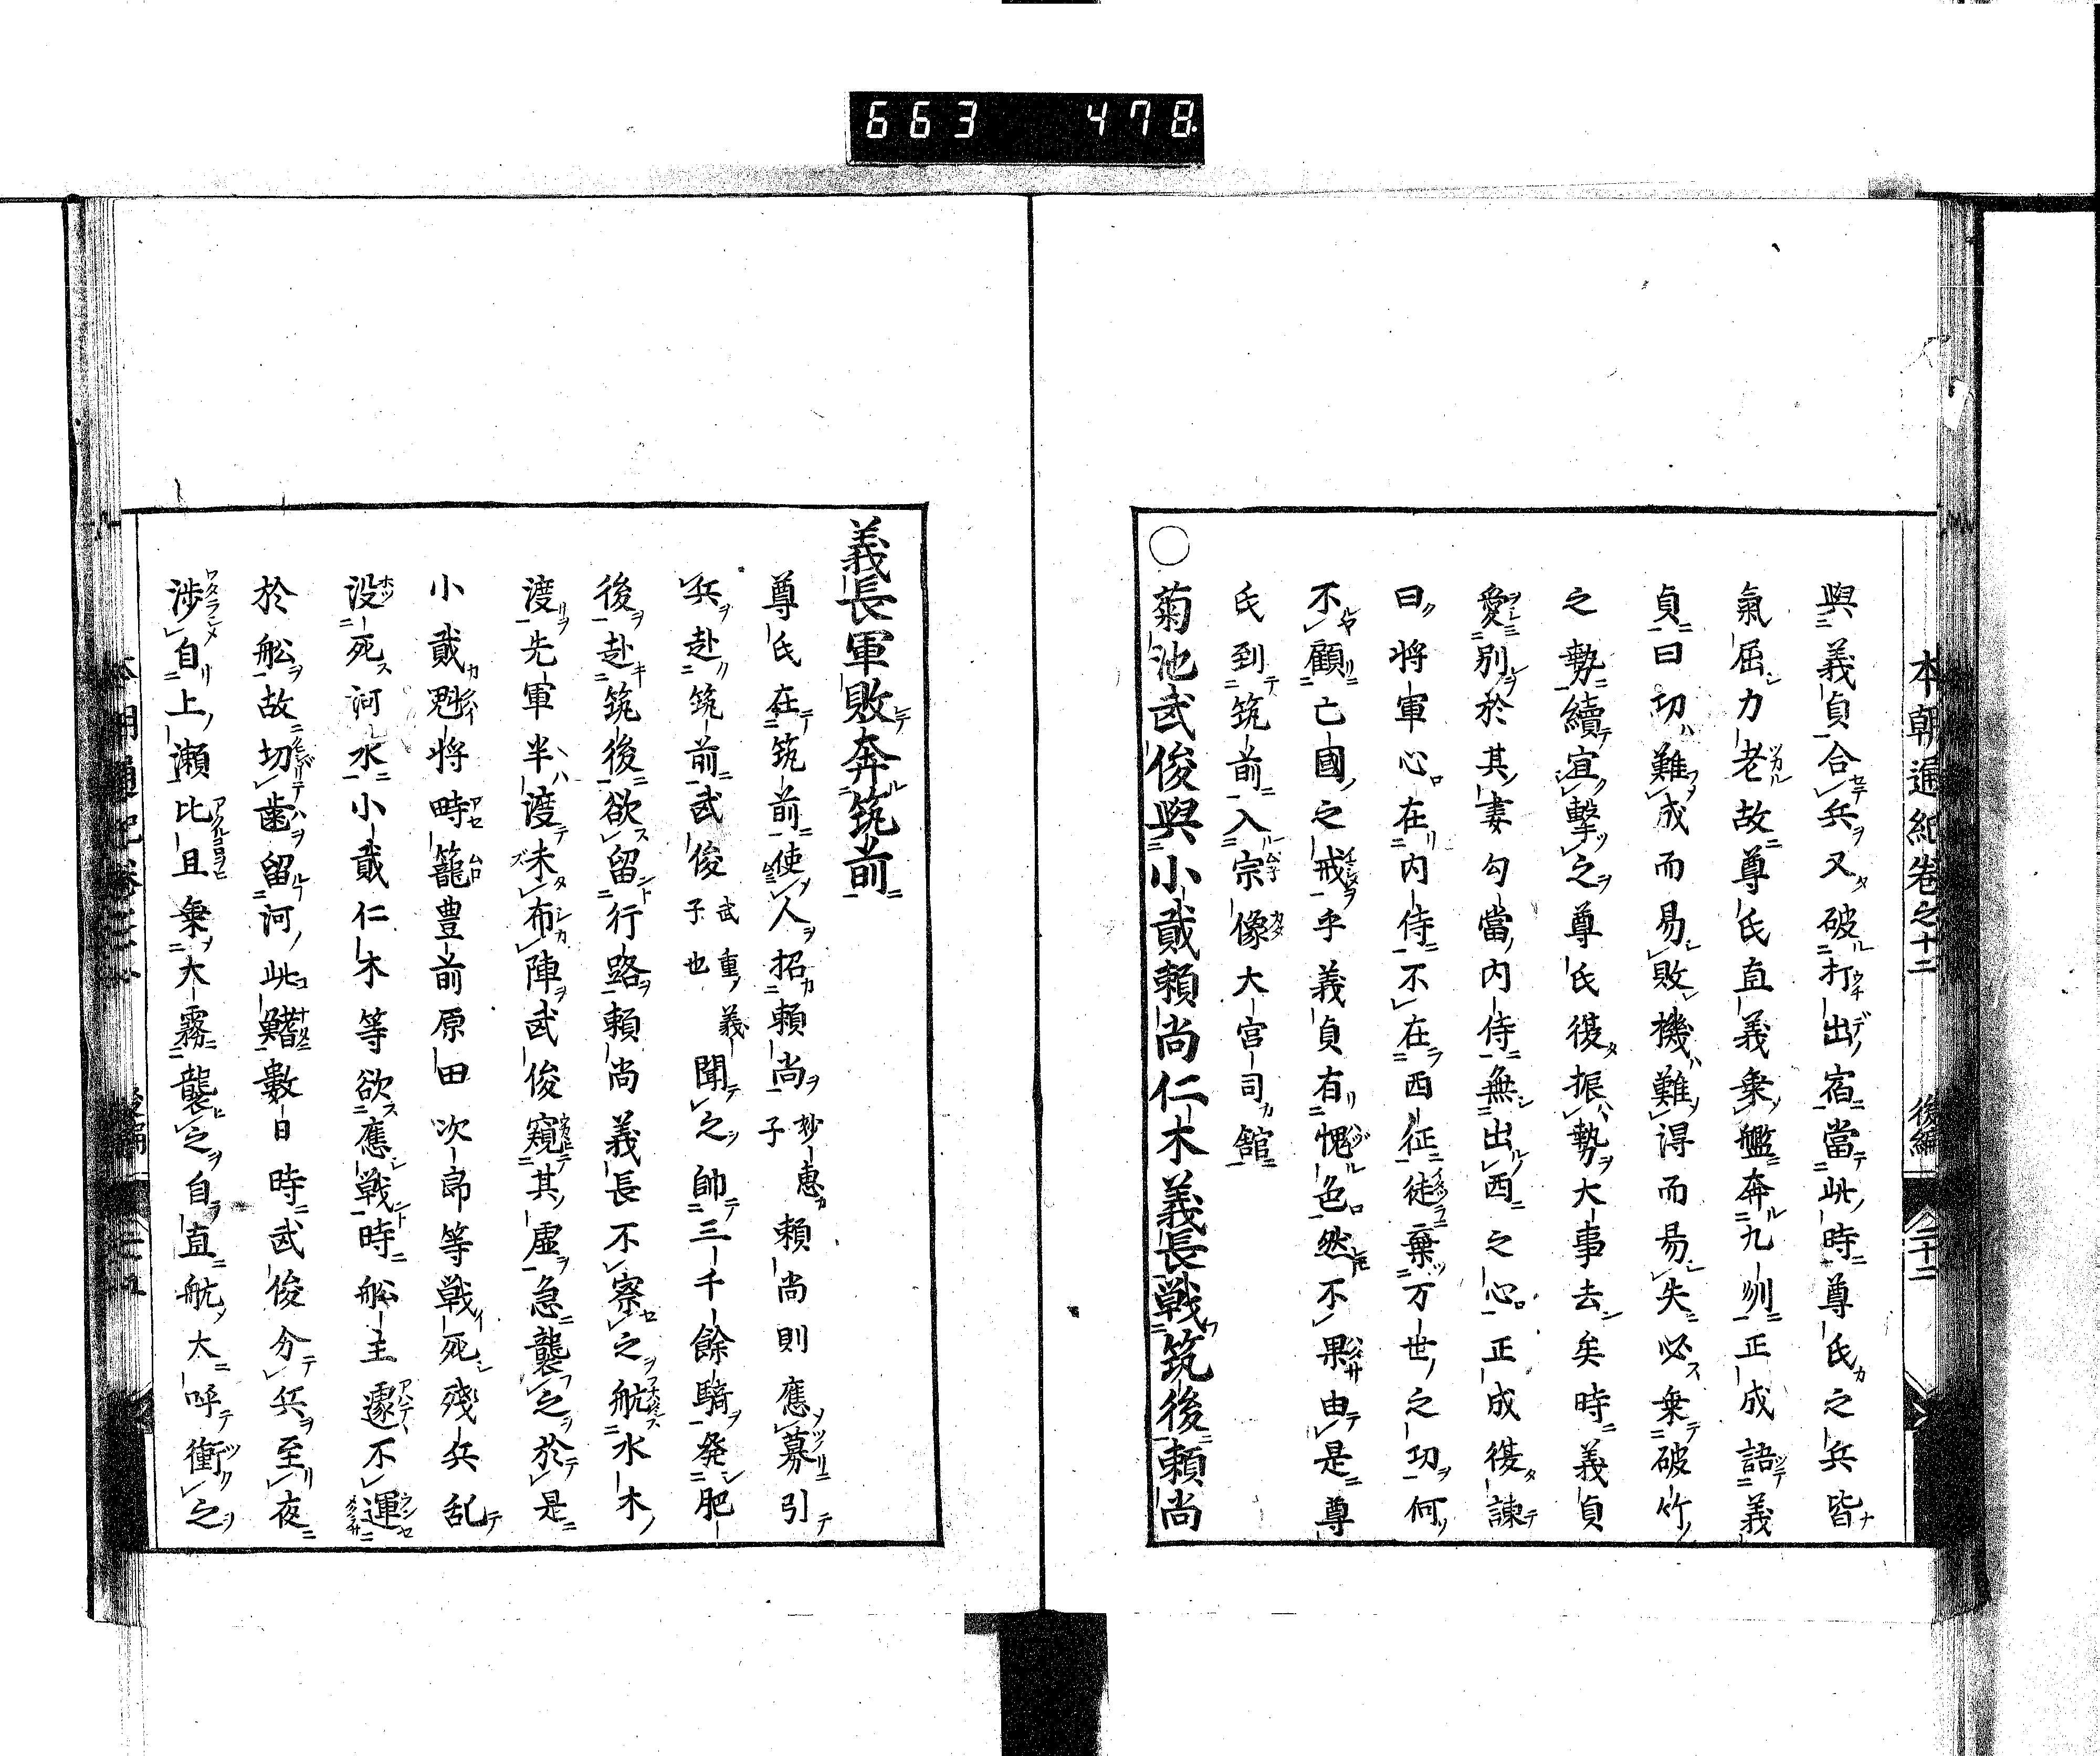 663 478
本朝通紀卷之十二 後編 二十二
與義貞合兵又破打出宿當此時尊氏之兵皆
氣屈力老故尊氏直義乗艦奔九刕正成語義
貞曰切難成而易敗機難得而易失必乗破竹
之勢續宜擊之尊氏復振勢大事去矣時義貞
愛別於其妻勾當内侍無出西之心正成復諌
曰将軍心在内侍不在西征徒棄万世之功何
不顧亡國之戒乎義貞有愧色然不果由是尊
氏到筑前入宗像大宮司舘
○菊池武俊與小貳頼尚仁木義長戦筑後頼尚
義長軍敗奔筑前
尊氏在筑前使人招頼尚妙惠子頼尚則應募引
兵赴筑前武俊武重義子也聞之帥三千餘騎発肥
後赴筑後欲留行路頼尚義長不察之航水木
渡先軍半渡未布陣武俊窺其虚急襲之於是
小貳魁将畤籠豊前原田次郎等戦死殘兵乱
没死河水小貳仁木等欲應戦時舩主遽不運
於舩故切歯留河此艱數日時武俊分兵至夜
渉自上瀬比且乗大霧襲之自直航大呼衝之